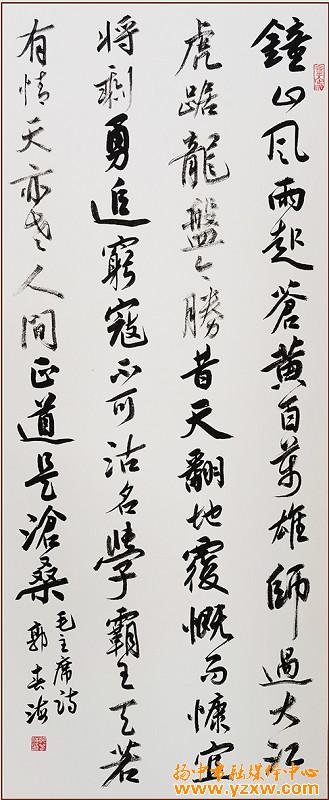 鐘山风雨起蒼黄百萬雄師過大江
虎踞龍盤今勝昔天翻地覆慨而慷宜
將剩勇追窮寇不可沽名學霸王天若
有情天亦老人間正道是滄桑
毛主席詩
郭春海
扬中市融媒体中心
www.yzxw.com